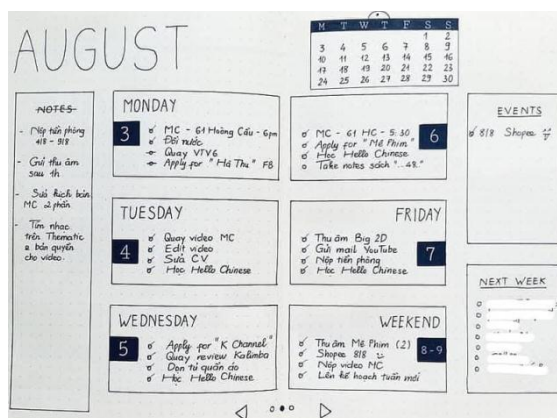 AUGUST
M T W T F S S
1 2
3 4 5 6 7 8 9
10 11 12 13 14 15 16
17 18 19 20 21 22 23
24 25 26 27 28 29 30
NOTES
- Nộp tiền phòng
4/8 - 9/8
- Gửi thu âm
sau 1h
- Sửa kịch bản
MC 2 phần
- Tìm nhạc
trên Thematic
& bản quyền
cho video.
MONDAY
3
MC - 61 Hoàng Cầu - 6pm
Đổi nước
Quay VTV6
Apply for "Hà Thu" FB
TUESDAY
4
Quay video MC
Edit video
Sửa CV
Học Hello Chinese
WEDNESDAY
5
Apply for "K Channel"
Quay review Kalimba
Dọn tủ quần áo
Học Hello Chinese
6
MC - 61 HC - 5:30
Apply for "Mê Phim"
Học Hello Chinese
Take notes sách "...48."
FRIDAY
7
Thu âm Big 2D
Gửi mail YouTube
Nộp tiền phòng
Học Hello Chinese
WEEKEND
8-9
Thu âm Mê Phim (2)
Shopee 8/8
Nộp video MC
Lên kế hoạch tuần mới
EVENTS
8/8 Shopee
NEXT WEEK